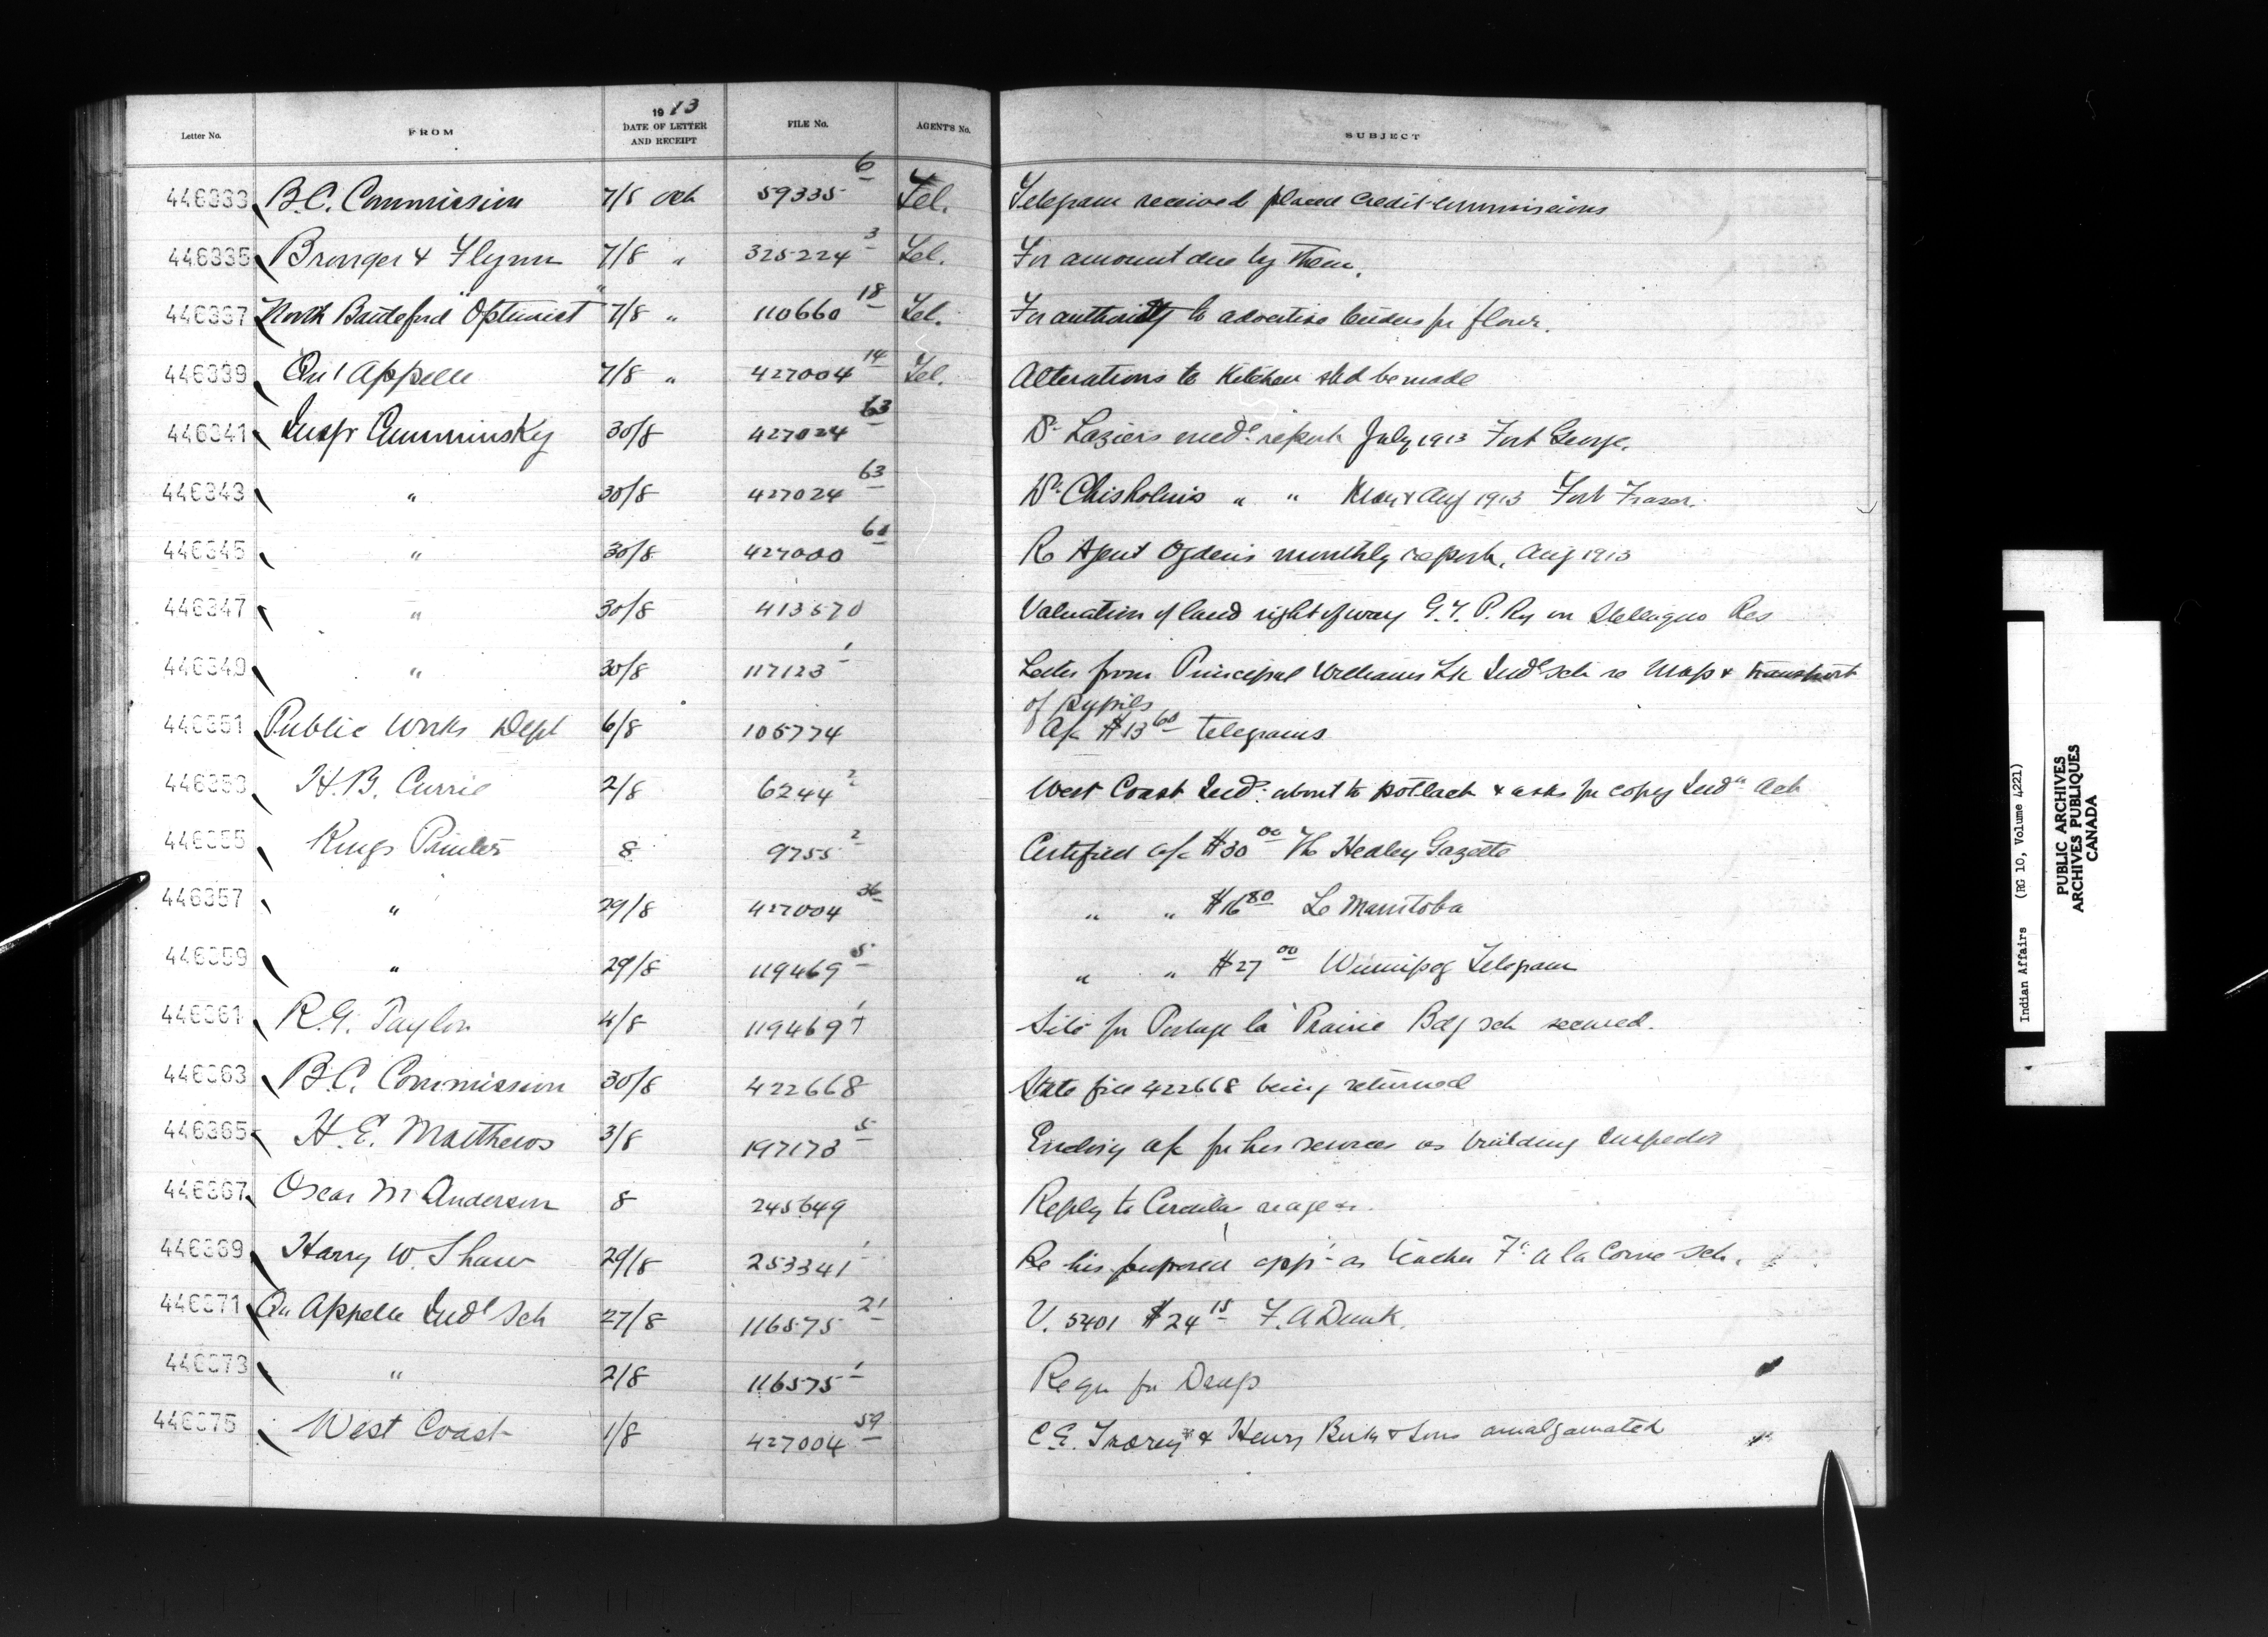 Letter No. FROM 1913 DATE OF LETTER AND RECEIPT FILE No. AGENT'S No. SUBJECT
446333 B.C. Commission 7/8 Oct 59335 6 Tel. Telegram received placed credit commissions
446335 Bronger & Flynn 7/8 " 325224 3 Tel. For amount due by them.
446337 North Battleford "Optimist" 7/8 " 110660 18 Tel. For authority to advertise tenders for flour.
446339 Qu'Appelle 7/8 " 427004 14 Tel. Alterations to Kitchen shd be made
446341 Inspr Cumminsky 30/8 427024 63 Dr. Laziers medl report July 1913 Fort George.
446343 " 30/8 427024 63 Dr. Chisholms " " May & Aug 1913 Fort Fraser.
446345 " 30/8 427000 60 Re Agent Ogdens monthly report, Aug 1913
446347 " 30/8 413570 Valuation of land right of way G.T.P. Ry on Stellaquo Res
446349 " 30/8 117123 1 Letter from Principal Williams Lk Indl sch re Map & transport
of pupils
446351 Public Works Dept 6/8 105774 A/c $13 60 telegrams
446353 H.B. Currie 2/8 6244 2 West Coast Inds. about to potlach & asks for copy Indn Act
446355 Kings Printer 8 9755 2 Certified a/c $30 00 The Hedley Gazette
446357 " 29/8 427004 36 " " $16 80 Le Manitoba
446359 " 29/8 119469 5 " " $27 00 Winnipeg Telegram
446361 R.G. Taylor 4/8 119469 1 Site for Portage la Prairie Bdg sch secured.
446363 B.C. Commission 30/8 422668 State file 422668 being returned
446365 H.E. Matthews 3/8 197173 5 Enclosing a/c for his services as building Inspector
446367 Oscar M Anderson 8 245649 Reply to Circular
446369 Harry W. Shaw 29/8 253341 1 Re his proposed appt as teacher Ft a la Corne sch.
446371 Qu Appelle Indl Sch 27/8 116575 21 V. 5401 $24 15 F. A Dunk.
446373 " 2/8 116575 1 Reqn for Drugs
446375 West Coast 1/8 427004 59 C.E. & Henry Birks & Sons amalgamated
Indian Affairs (RG 10, Volume 4221)
PUBLIC ARCHIVES
ARCHIVES PUBLIQUES
CANADA